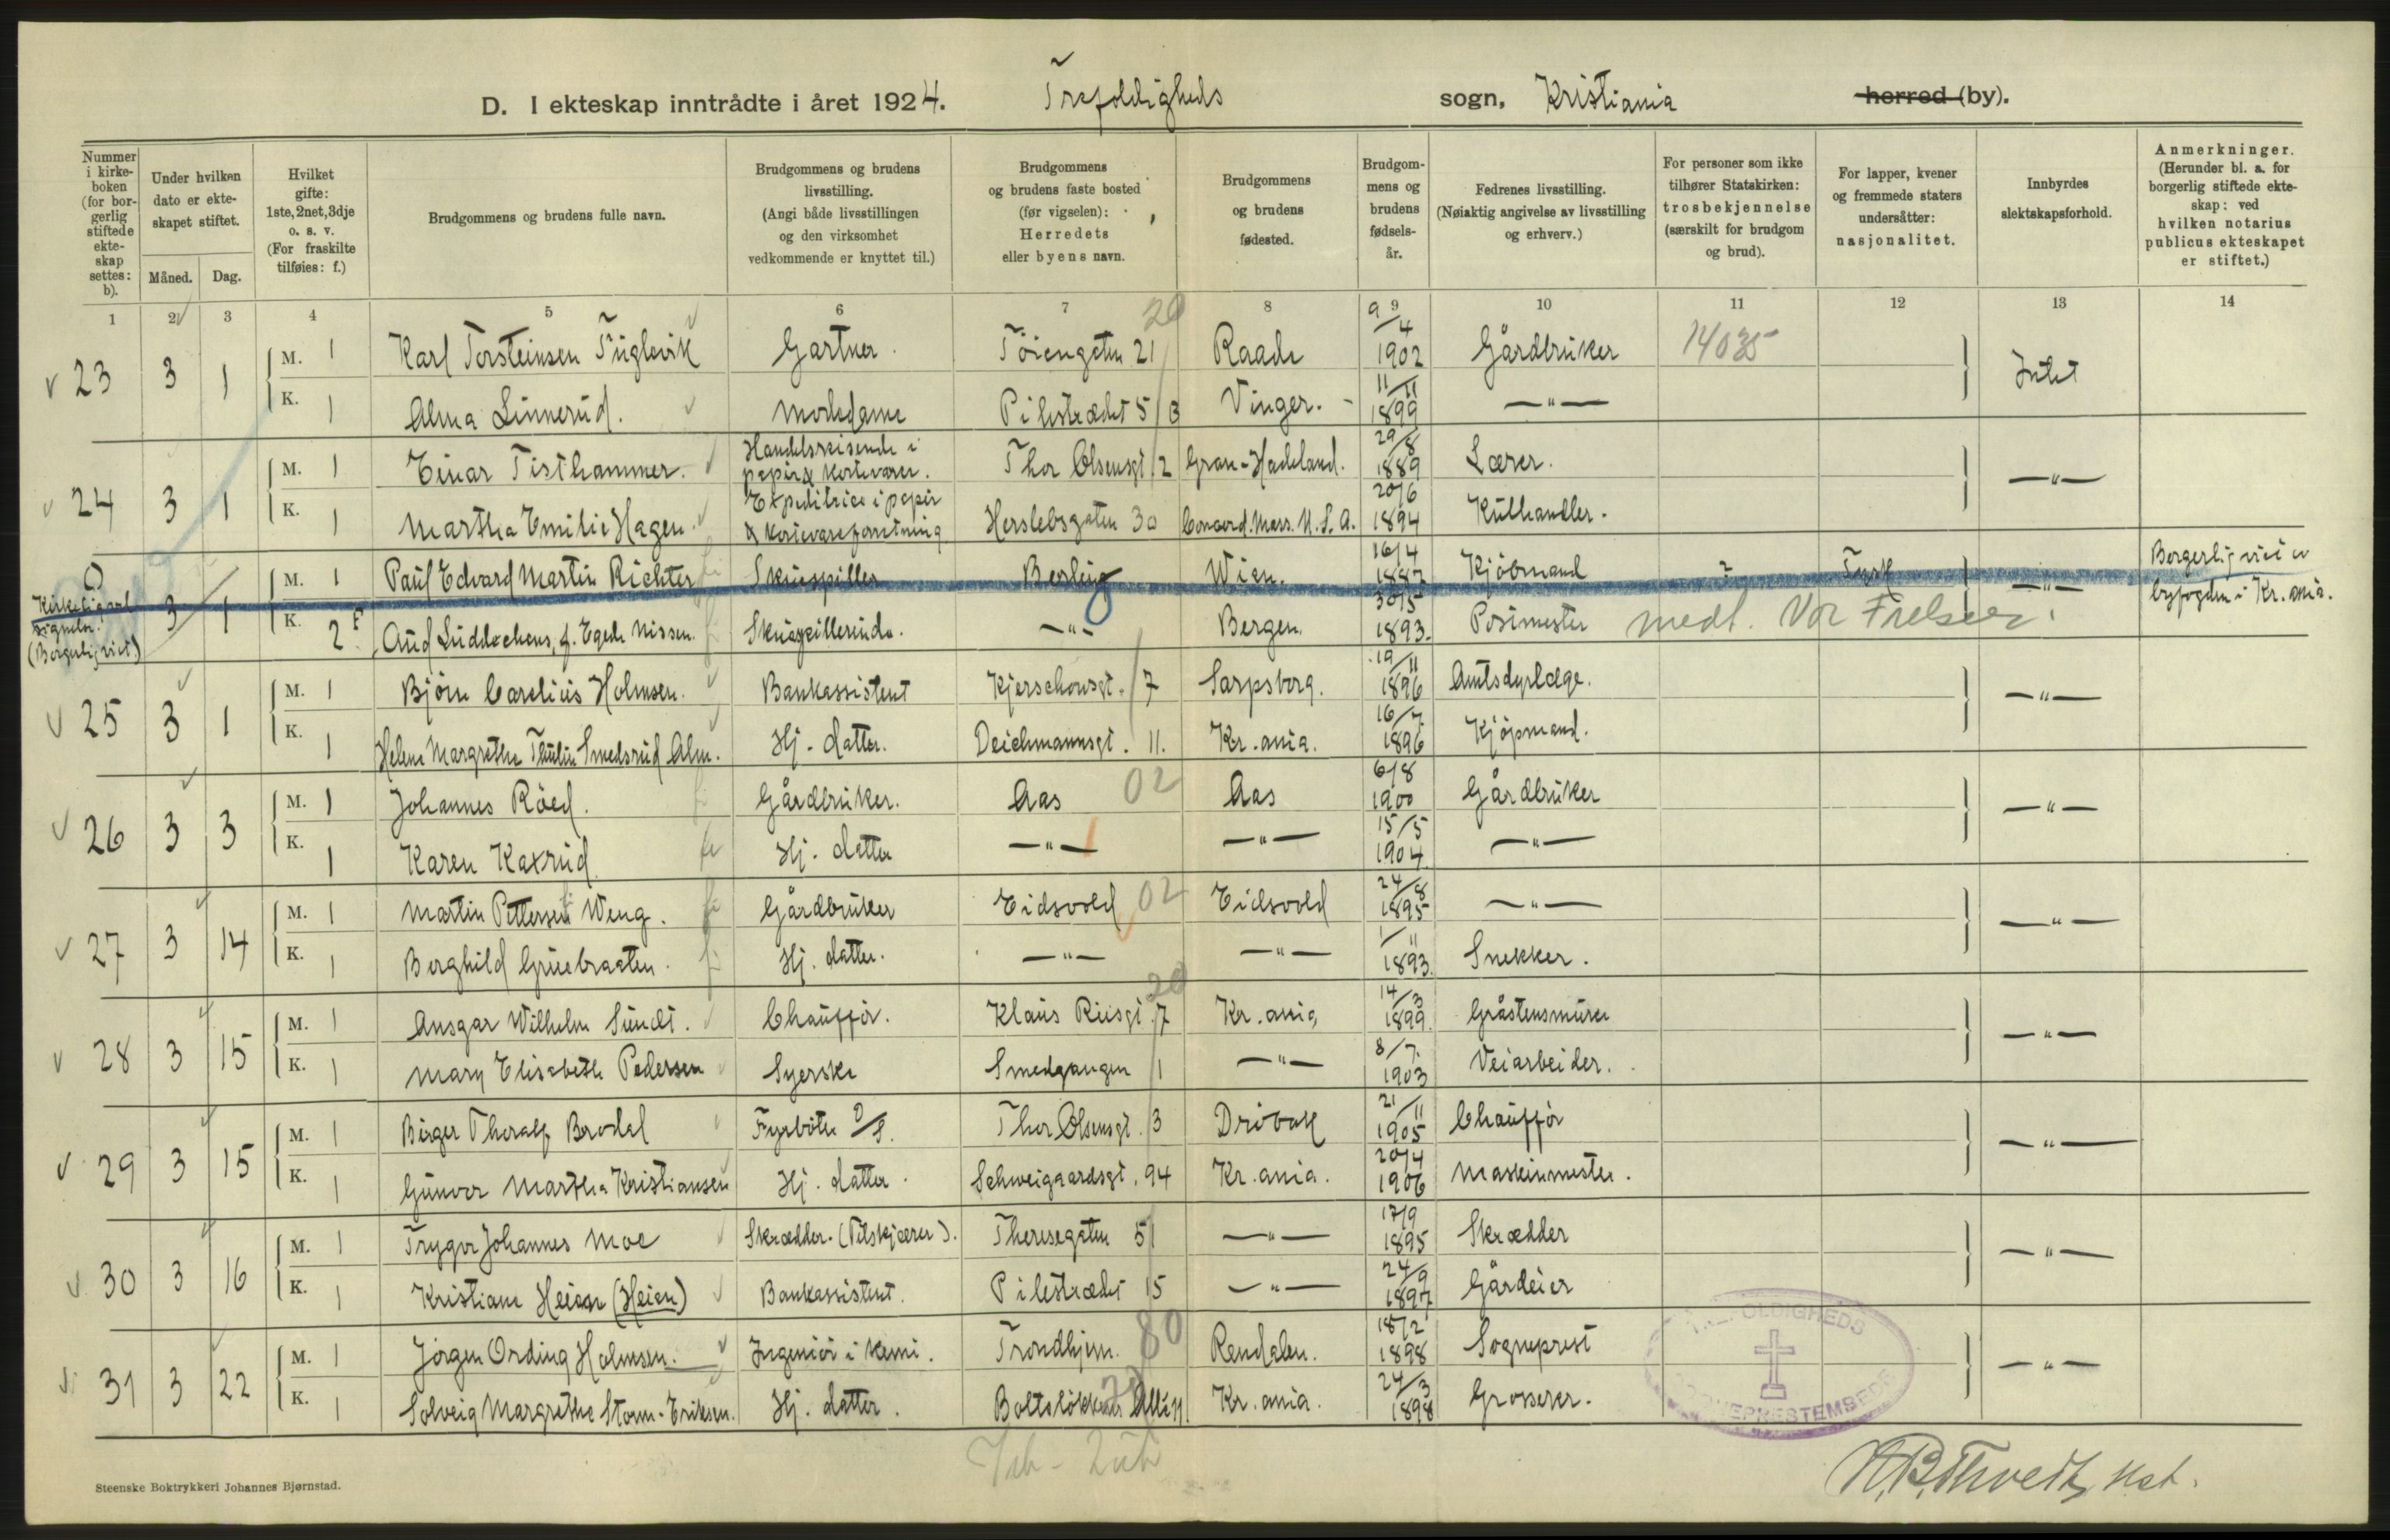 D. I ekteskap inntrådte i året 1924. Trefoldigheds sogn, Kristiania herred (by).
Nummer i kirkeboken (for borgerlig stiftede ekteskap settes: b).
Under hvilken dato er ekteskapet stiftet.
Måned. Dag.
Hvilket gifte: 1ste, 2net, 3dje o. s. v. (For fraskilte tilføies: f.)
Brudgommens og brudens fulle navn.
Brudgommens og brudens livsstilling. (Angi både livsstillingen og den virksomhet vedkommende er knyttet til.)
Brudgommens og brudens faste bosted (før vigselen): Herredets eller byens navn.
Brudgommens og brudens fødested.
Brudgommens og brudens fødselsår.
Fedrenes livsstilling. (Nøiaktig angivelse av livsstilling og erhverv.)
For personer som ikke tilhører Statskirken: trosbekjennelse (særskilt for brudgom og brud).
For lapper, kvener og fremmede staters undersåtter: nasjonalitet.
Innbyrdes slektskapsforhold.
Anmerkninger. (Herunder bl. a. for borgerlig stiftede ekteskap: ved hvilken notarius publicus ekteskapet er stiftet.)
1 2 3 4 5 6 7 8 9 10 11 12 13 14
23 3 1 M. 1 Karl Torsteinsen Fuglevik Gartner Töiengaten 21 20 Raade 9/4 1902 Gårdbruker 14035 Intet
K. 1 Alma Linnerud. Modedame Pilestrædet 5/3 Vinger. 11/11 1899 —"—
24 3 1 M. 1 Einar Tisthammer. Handelsreisende i papir & kortevarer. Thor Olsensgt 2 Gran-Hadeland. 29/8 1889 Lærer. —"—
K. 1 Martha Emilie Hagen. Expeditrice i papir & kortevareforretning Herslebsgaten 30 Concord. Mass. U.S.A. 20/6 1894 Kulhandler.
Kirkelig velsignelse. (Borgerlig viet) 3 1 M. 1 Paul Edvard Martin Richter Skuespiller Berlin Wien. 16/4 1887 Kjöbmand ? Tysk —"— Borgerlig viet av byfogden i Kr.ania.
K. 2 f Aud Lüddeckens, f. Egede Nissen. Skuespillerinde. —"— Bergen. 30/5 1893. Postmester medt. Vor Frelser.
25 3 1 M. 1 Björn Carelius Holmsen. Bankassistent Kjerschowsgt. 7 Sarpsborg. 19/11 1896 Amtsdyrlæge. —"—
K. 1 Helene Margrethe Thulin Smedsrud Alm. Hj. datter. Deichmannsgt. 11. Kr.ania. 16/7. 1896 Kjöpmand.
26 3 3 M. 1 Johannes Röed. Gårdbruker. Aas 02 Aas 6/8 1900 Gårdbruker —"—
K. 1 Karen Kaxrud Hj. datter —"— —"— 15/5 1904. —"—
27 3 14 M. 1 Martin Pettersen Weng. Gårdbruker Eidsvold 02 Eidsvold 24/8 1895 —"— —"—
K. 1 Borghild Gruebraaten. Hj. datter. —"— —"— 1/11 1893. Snekker.
28 3 15 M. 1 Ansgar Wilhelm Sundt. Chaufför. Klaus Riisgt. 7 20 Kr.ania 14/3 1899. Gråstensmurer —"—
K. 1 Mary Elisabeth Pedersen Syerske Smedgangen 1 —"— 8/7. 1903 Veiarbeider.
29 3 15 M. 1 Birger Thoralf Brodal Fyrböter D/S. Thor Olsensgt. 3 Dröbak 21/11 1905 Chaufför —"—
K. 1 Gunvor Martha Kristiansen Hj. datter. Schweigaardsgt. 94 Kr.ania. 20/4 1906 Maskinmester.
30 3 16 M. 1 Trygve Johannes Moe Skrædder. (Tilskjærer). Theresegaten 51 —"— 17/9 1895 Skrædder —"—
K. 1 Kristiane Heian (Heien) Bankassistent. Pilestrædet 15 —"— 24/9 1897 Gårdeier
31 3 22 M. 1 Jörgen Ording Holmsen. Ingeniör i kemi. Trondhjem. 80 Rendalen. 18/2 1898 Sogneprest —"—
K. 1 Solveig Margrethe Storm-Eriksen. Hj. datter. Boltelökkens Allé 11. Kr.ania. 24/3 1898 Grosserer.
TREFOLDIGHEDS SOGNEPRESTEMBEDE
Steenske Boktrykkeri Johannes Bjørnstad.